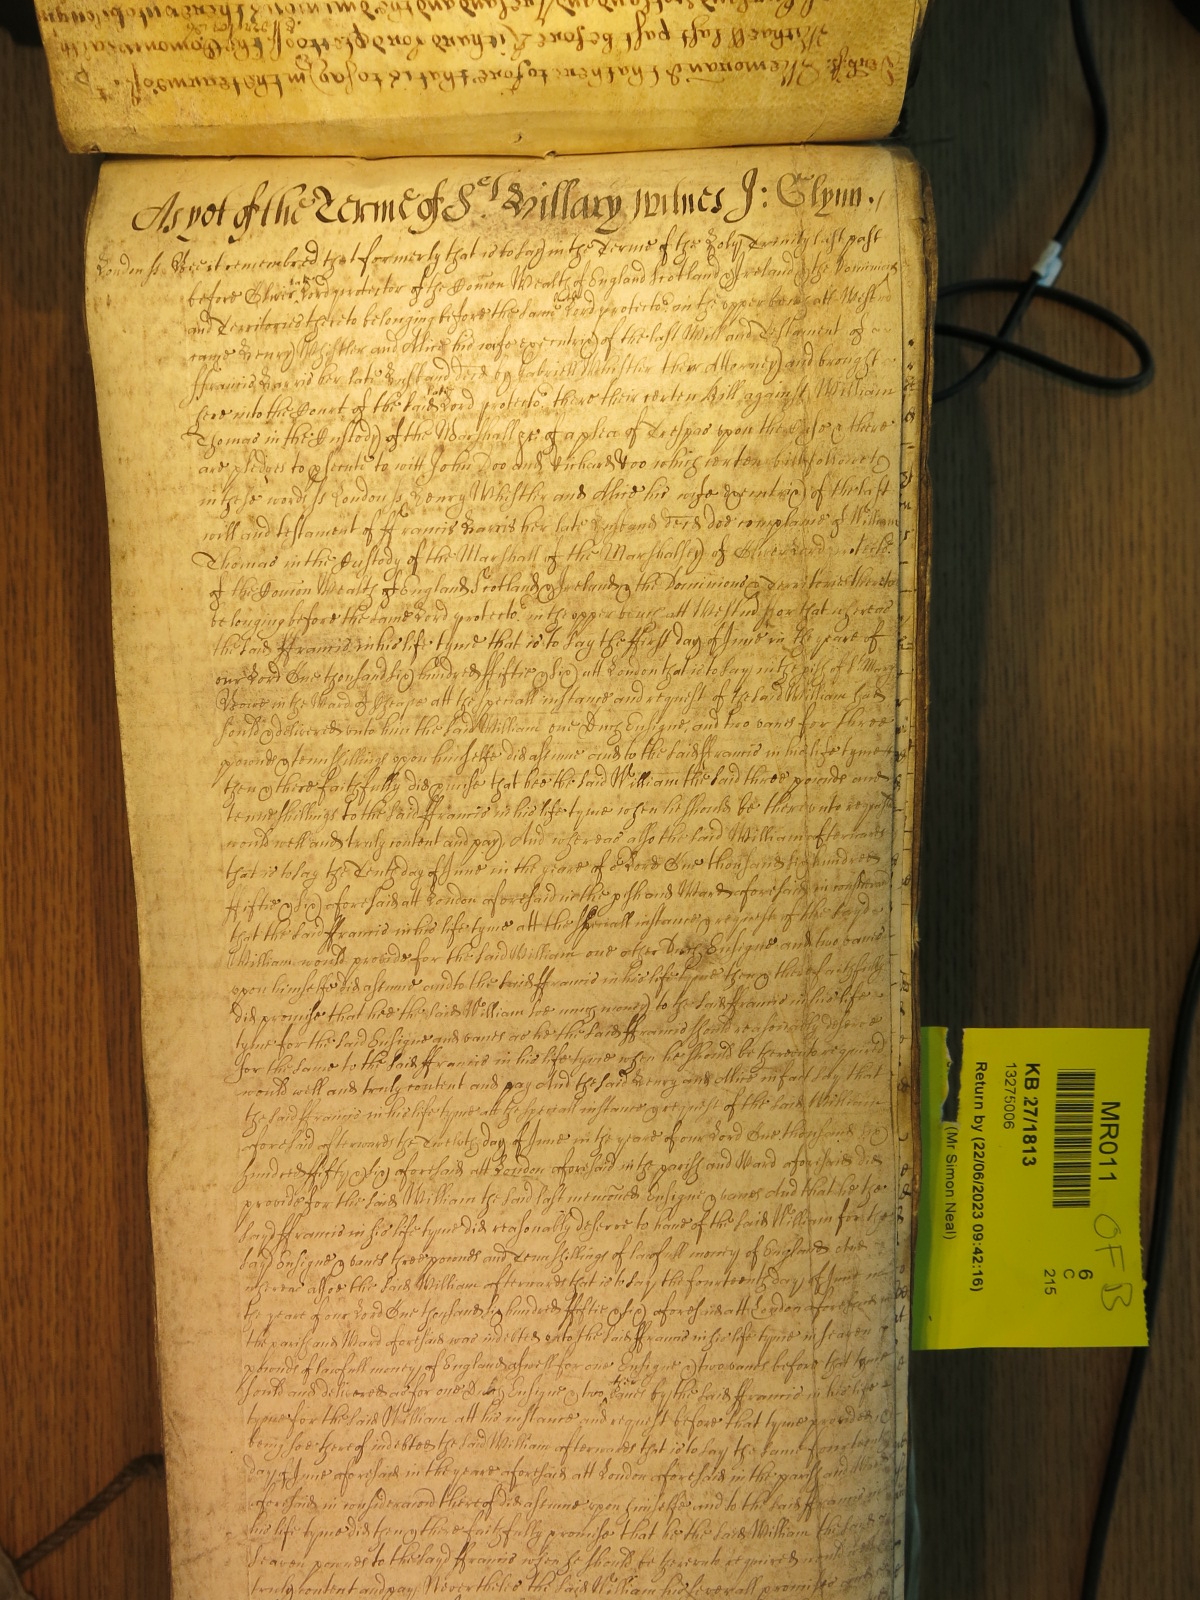 As yet of the Terme of St. Hillary Witnes J: Glynn.
London ss Bee it remembred that formerly that is to say in the Terme of the Holy Trinity last past
before Oliver late Lord protector of the Comon Wealth of England Scotland & Ireland & the Dominions
and Territories thereto belonging before the same late Lord protector in the upper bench att Westmr
came Henry Whistler and Alice his wife executrix of the last Will and Testament of
ffrancis Harris her late Husband decd by Gabriell Whistler their Attorney and brought
here into the Court of the said late Lord protector there their certen Bill against William
Thomas in the Custody of the Marshall &c of a plea of Trespas upon the Case & there
are pledges to psecute to witt John Doo and Richard Roo which certen bill followeth
in these words ss London ss Henry Whistler and Alice his wife Executrix of the last
will and testament of ffrancis Harris her late Husband decd doe complaine of William
Thomas in the Custody of the Marshall of the Marshalsey of Oliver Lord protector
of the Comon Wealth of England Scotland & Ireland & the Dominions & Territories thereto
belonging before the same Lord protector in the upper bench att Westmr for that whereas
the said ffrancis in his life tyme that is to say the ffirst day of June in the yeare of
our Lord One thousand six hundred ffiftie & Six att London that is to say in the pish of St Mary
Bowe in the Ward of Cheape att the speciall instance and request of the said William had
sould & delivered unto him the said William one Ensigne, and two vanes for three
pounds & tenn shillings upon himselfe did assume and to the said ffrancis in his life tyme
then & there faithfully did pmise that hee the said William the said three pounds and
tenne shillings to the said ffrancis in his life tyme when he should be thereunto
would well and truly content and pay And whereas also the said William afterwards
that is to say the Tenth day of June in the yeare of or Lord One thousand six hundred
ffiftie & Six aforesaid att London aforesaid in the pish and Ward aforesaid in
that the said ffrancis in his life tyme att the speciall instance & request of the sayd
William would provide for the said William one other Ensigne and two vanes
upon himselfe did assume and to the said ffrancis in his life tyme then & there faithfully
did promise that hee the said William soe much money to the said ffrancis in his life
tyme for the said Ensigne and vanes as he the said ffrancis should reasonably deserve
for the same to the said ffrancis in his life tyme when he should be thereunto required
would well and truly content and pay And the said Henry and Alice in fact say that
the said ffrancis in his life tyme at the speciall instance & request of the said William
aforesaid afterwards the Twelvth day of June in the yeare of our Lord One thousand six
hundred ffifty & Six aforesaid att London aforesaid in the parish and Ward aforesaid did
provide for the said William the said last mencioned Ensigne & vanes And that he the
sayd ffrancis in his life tyme did reasonably deserve to have of the said William for the
said Ensigne & vanes three pounds and Tenn shillings of lawfull money of England And
whereas alsoe the said William afterwards that is to say the fourteenth day of June in
the yeare of our Lord One thousand six hundred ffiftie & Six aforesaid att London aforesaid in
the parish and Ward aforesaid was indebted unto the said ffrancis in his life tyme in seaven
pounds of lawfull money of England aswell for one Ensigne & two vanes before that tyme
sould and delivered as for one Ensigne & two other vanes by the said ffrancis in his life
tyme for the said William att his instance and request before that tyme provided
being soe thereof indebted the said William afterwards that is to say the same fourteenth
day of June aforesaid in the yeare aforesaid att London aforesaid in the parish and Ward
aforesaid in consideracon thereof did assume upon himselfe and to the said ffrancis
his life tyme did then & there faithfully promise that he the said William the said
seaven pounds to the sayd ffrancis when he should be thereunto required would
truly content and pay Neverthelesse the said William his severall promises
MR011
KB 27/1813
13275006
Return by (22/06/2023 09:42:16)
(Mr Simon Neal)
6
C
215
OFB